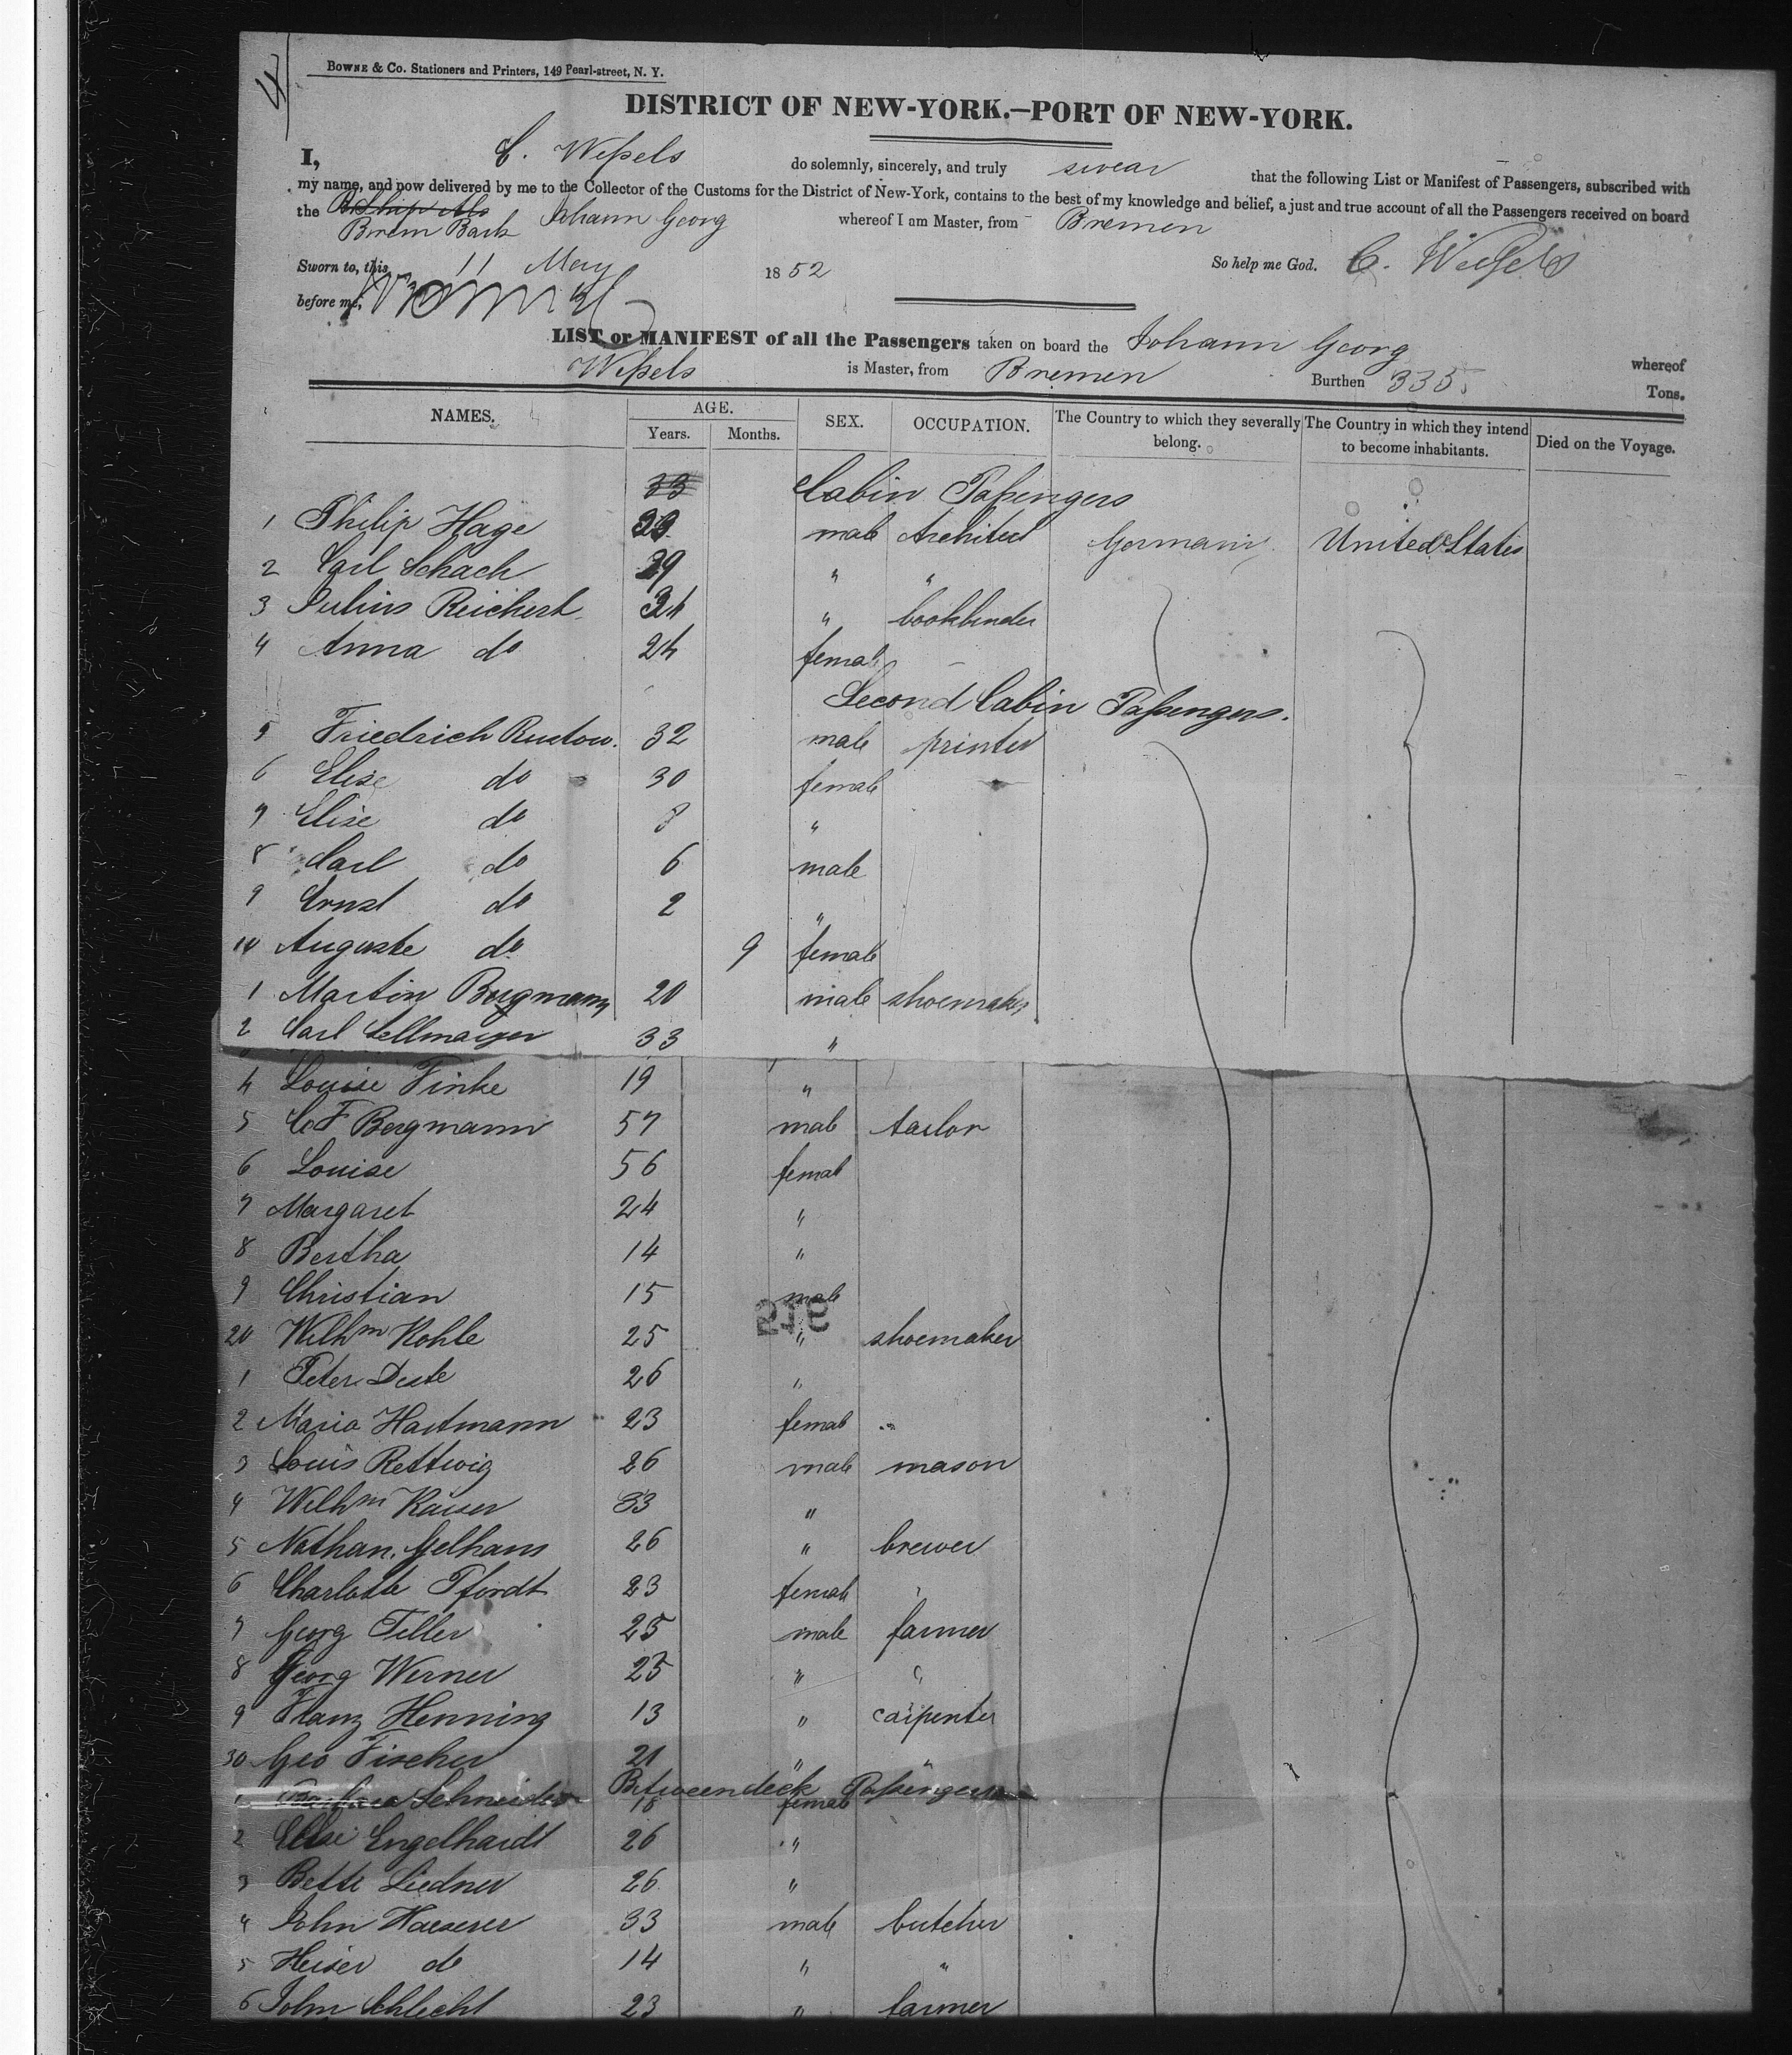 4
BOWNE & Co. Stationers and Printers, 149 Pearl-street, N. Y.
DISTRICT OF NEW-YORK.—PORT OF NEW-YORK.
I, C. Weſsels do solemnly, sincerely, and truly swear that the following List or Manifest of Passengers, subscribed with
my name, and now delivered by me to the Collector of the Customs for the District of New-York, contains to the best of my knowledge and belief, a just and true account of all the Passengers received on board
the Brem Bark Johann Georg whereof I am Master, from Bremen
Sworn to, this 11 May 1852 So help me God. C. Weſsels
before me,
LIST or MANIFEST of all the Passengers taken on board the Johann Georg whereof
Weſsels is Master, from Bremen Burthen 335 Tons.
NAMES. AGE. SEX. OCCUPATION. The Country to which they severally belong. The Country in which they intend to become inhabitants. Died on the Voyage.
Years. Months.
33 Cabin Paſsengers
1 Philip Hage male Architect Germany United States
2 Carl Schach 29 " "
3 Julius Reichert 34 " bookbinder
4 Anna do 24 female —
Second Cabin Paſsengers.
5 Friedrich Rustow. 32 male printer
6 Elise do 30 female
7 Elise do 8 "
8 Carl do 6 male
9 Ernst do 2 "
10 Auguste do 9 female
1 Martin Bergmann 20 male shoemaker
2 Carl Sellmaeyer 33 "
4 Louise Finke 19 "
5 C F Bergmann 57 male tailor
6 Louise 56 female
7 Margaret 24 "
8 Bertha 14 "
9 Christian 15 male
20 Wilhm Kohle 25 " shoemaker
1 Peter Deste 26 "
2 Maria Hartmann 23 female "
3 Louis Rettwig 26 male mason
4 Wilhm Kaiser 33 "
5 Nathan Gelhaus 26 " brewer
6 Charlotte Pfordt 23 female "
7 Georg Feller 25 male farmer
8 Georg Werner 25 " "
9 Franz Henning 13 " carpenter
30 Geo Fischer 21 " "
Betweendeck Paſsengers
1 Barbara Schneider 18 female
2 Elise Engelhardt 26 "
3 Bette Liedner 26 "
4 John Haeserer 33 male butcher
5 Heiser do 14 " "
6 John Schlecht 23 " farmer